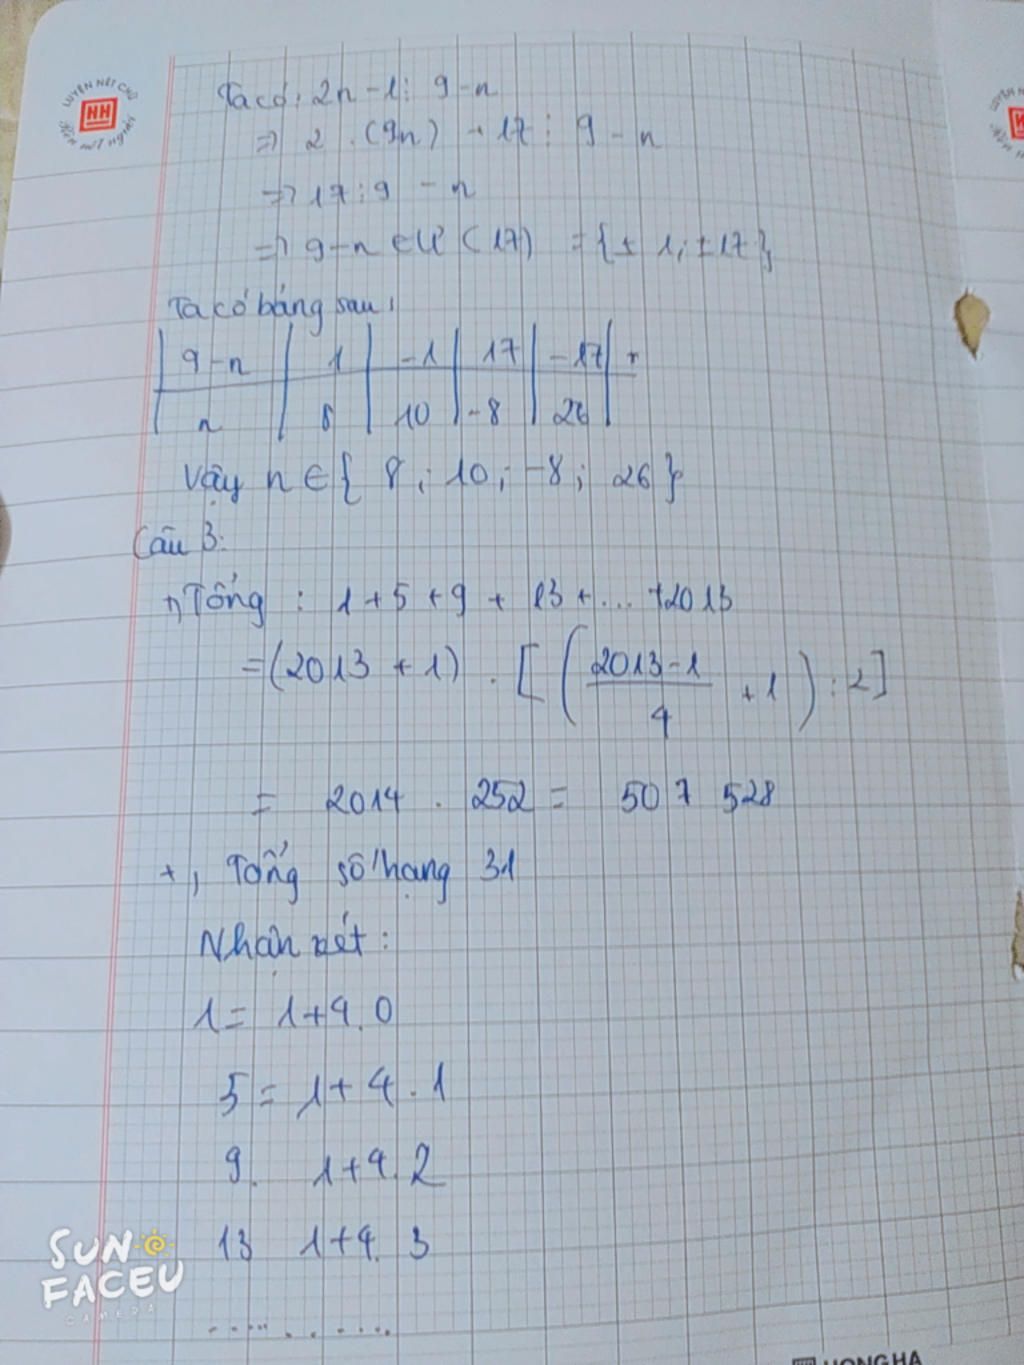 LUYỆN NÉT CHỮ
HH
Rèn nết người
Ta có: 2n - 1 ⋮ 9 - n
=> 2 . (9n) - 17 ⋮ 9 - n
=> 17 ⋮ 9 - n
=> 9 - n ∈ Ư (17) = {± 1; ±17}
Ta có bảng sau:
9 - n | 1 | -1 | 17 | -17 | +
n | 8 | 10 | -8 | 26 |
Vậy n ∈ { 8 ; 10 ; -8 ; 26 }
Câu 3:
+) Tổng : 1 + 5 + 9 + 13 + ... +2013
= (2013 + 1) . [ ( (2013 - 1)/4 + 1 ) : 2 ]
= 2014 . 252 = 507 528
+, Tổng số hạng 31
Nhận xét:
1 = 1 + 4 . 0
5 = 1 + 4 . 1
9. 1 + 4. 2
13 1 + 4. 3
..........
SUN
FACEU
CAMERA
HONG HA